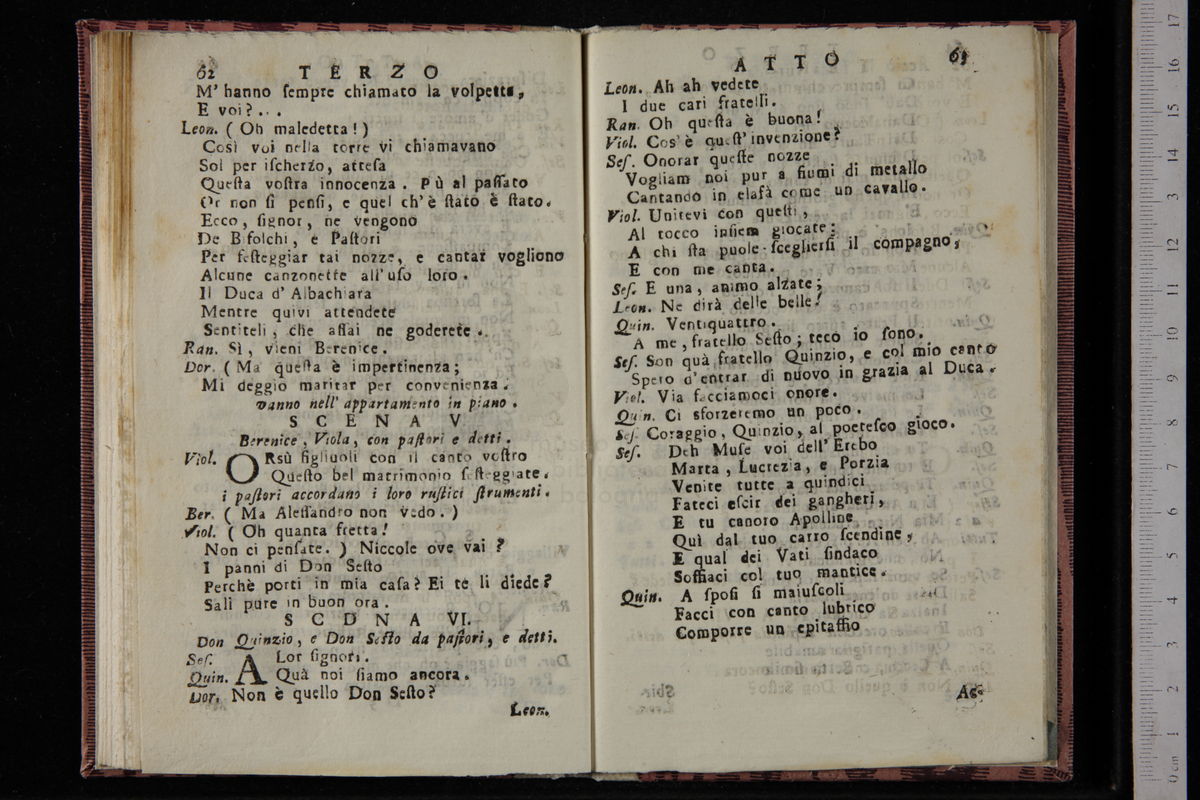 62 TERZO
M' hanno ſempre chiamato la volpetta,
E voi?...
Leon. ( Oh maledetta! )
Così voi nella torre vi chiamavano
Sol per iſcherzo, atteſa
Queſta voſtra innocenza. Pù al paſſato
Or non ſi penſi, e quel ch'è ſtato è ſtato.
Ecco, ſignor, ne vengono
De Bifolchi, e Paſtori
Per feſteggiar tai nozze, e cantar vogliono
Alcune canzonette all' uſo loro.
Il Duca d' Albachiara
Mentre quivi attendete
Sentiteli, che aſſai ne goderete.
Ran. Sì, vieni Berenice.
Dor. ( Ma queſta è impertinenza;
Mi deggio maritar per convenienza.
vanno nell' appartamento in piano.
SCENA V.
Berenice, Viola, con paſtori e detti.
Viol. ORsù figliuoli con il canto voſtro
Queſto bel matrimonio feſteggiate.
i paſtori accordano i loro ruſtici ſtrumenti.
Ber. ( Ma Aleſſandro non vedo. )
Viol. ( Oh quanta fretta!
Non ci penſate. ) Niccole ove vai?
I panni di Don Seſto
Perchè porti in mia caſa? Ei te li diede?
Sali pure in buon ora.
SCDNA VI.
Don Quinzio, e Don Seſto da paſtori, e detti.
Seſ. ALor ſignori.
Quin. Quà noi ſiamo ancora.
Dor. Non è quello Don Seſto?
Leon.
ATTO 63
Leon. Ah ah vedete
I due cari fratelli.
Ran. Oh queſta è buona!
Viol. Cos' è queſt' invenzione?
Seſ. Onorar queſte nozze
Vogliam noi pur a fiumi di metallo
Cantando in elafà come un cavallo.
Viol. Unitevi con queſti,
Al tocco inſiem giocate;
A chi ſta puole ſceglierſi il compagno,
E con me canta.
Seſ. E una, animo alzate;
Leon. Ne dirà delle belle!
Quin. Ventiquattro.
A me, fratello Seſto; teco io ſono.
Seſ. Son quà fratello Quinzio, e col mio canto
Spero d'entrar di nuovo in grazia al Duca.
Viol. Via facciamoci onore.
Quin. Ci sforzeremo un poco.
Seſ. Coraggio, Quinzio, al poeteſco gioco.
Seſ. Deh Muſe voi dell' Erebo
Marta, Lucrezia, e Porzia
Venite tutte a quindici
Fateci eſcir dei gangheri,
E tu canoro Apolline
Quì dal tuo carro ſcendine,
E qual dei Vati ſindaco
Soffiaci col tuo mantice.
Quin. A ſpoſi ſi maiuſcoli
Facci con canto lubrico
Comporre un epitaffio